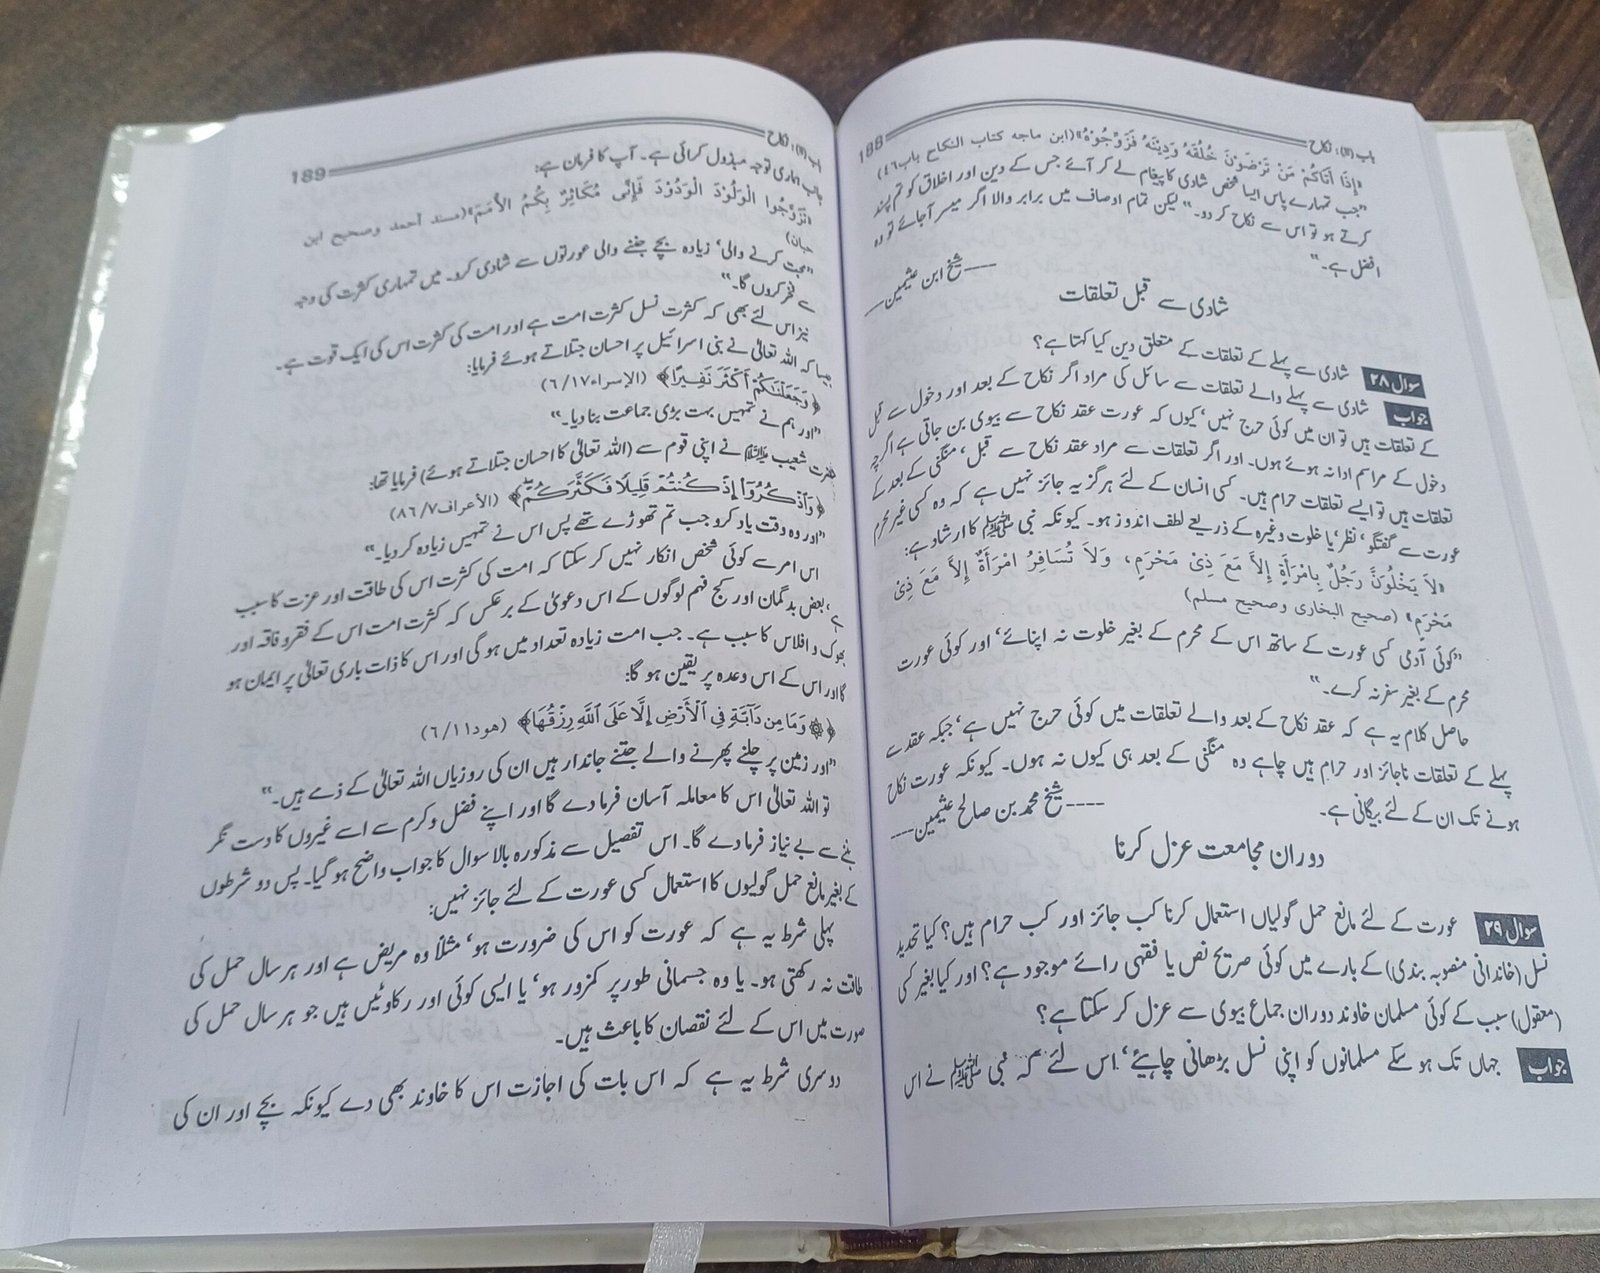 باب (۱۱): نکاح
188
«إِذَا أَتَاكُمْ مَنْ تَرْضَوْنَ خُلُقَهُ وَدِيْنَهُ فَزَوِّجُوْهُ»(ابن ماجه كتاب النكاح باب٤٦)
”جب تمہارے پاس ایسا شخص شادی کا پیغام لے کر آئے جس کے دین اور اخلاق کو تم پسند
کرتے ہو تو اس سے نکاح کر دو۔“ لیکن تمام اوصاف میں برابر والا اگر میسر آجائے تو وہ
افضل ہے۔“
----شیخ ابن عثیمین----
شادی سے قبل تعلقات
سوال ۲۸ شادی سے پہلے کے تعلقات کے متعلق دین کیا کہتا ہے؟
جواب شادی سے پہلے والے تعلقات سے سائل کی مراد اگر نکاح کے بعد اور دخول سے قبل
کے تعلقات ہیں تو ان میں کوئی حرج نہیں‘ کیوں کہ عورت عقد نکاح سے بیوی بن جاتی ہے اگرچہ
دخول کے مراسم ادا نہ ہوئے ہوں۔ اور اگر تعلقات سے مراد عقد نکاح سے قبل‘ منگنی کے بعد کے
تعلقات ہیں تو ایسے تعلقات حرام ہیں۔ کسی انسان کے لئے ہرگز یہ جائز نہیں ہے کہ وہ کسی غیر محرم
عورت سے گفتگو‘ نظر‘ یا خلوت وغیرہ کے ذریعے لطف اندوز ہو۔ کیونکہ نبی ﷺ کا ارشاد ہے:
«لاَ يَخْلُوَنَّ رَجُلٌ بِامْرَأَةٍ إِلاَّ مَعَ ذِىْ مَحْرَمٍ، وَلاَ تُسَافِرُ امْرَأَةٌ إِلاَّ مَعَ ذِىْ
مَحْرَمٍ» (صحيح البخارى وصحيح مسلم)
”کوئی آدمی کسی عورت کے ساتھ اس کے محرم کے بغیر خلوت نہ اپنائے‘ اور کوئی عورت
محرم کے بغیر سفر نہ کرے۔“
حاصل کلام یہ ہے کہ عقد نکاح کے بعد والے تعلقات میں کوئی حرج نہیں ہے‘ جبکہ عقد سے
پہلے کے تعلقات ناجائز اور حرام ہیں چاہے وہ منگنی کے بعد ہی کیوں نہ ہوں۔ کیونکہ عورت نکاح
ہونے تک ان کے لئے بیگانی ہے۔
----شیخ محمد بن صالح عثیمین----
دوران مجامعت عزل کرنا
سوال ۲۹ عورت کے لئے مانع حمل گولیاں استعمال کرنا کب جائز اور کب حرام ہیں؟ کیا تحدید
نسل (خاندانی منصوبہ بندی) کے بارے میں کوئی صریح نص یا فقہی رائے موجود ہے؟ اور کیا بغیر کسی
(معقول) سبب کے کوئی مسلمان خاوند دوران جماع بیوی سے عزل کر سکتا ہے؟
جواب جہاں تک ہو سکے مسلمانوں کو اپنی نسل بڑھانی چاہیئے‘ اس لئے کہ نبی ﷺ نے اس
باب (۱۱): نکاح
189
جانب ہماری توجہ مبذول کرائی ہے۔ آپ کا فرمان ہے:
«تَزَوَّجُوا الْوَلُوْدَ الْوَدُوْدَ فَإِنِّى مُكَاثِرٌ بِكُمُ الأُمَمَ»(مسند أحمد وصحيح ابن
حبان)
”محبت کرنے والی‘ زیادہ بچے جننے والی عورتوں سے شادی کرو۔ میں تمہاری کثرت کی وجہ
سے فخر کروں گا۔“
نیز اس لئے بھی کہ کثرت نسل کثرت امت ہے اور امت کی کثرت اس کی ایک قوت ہے۔
جیسا کہ اللہ تعالیٰ نے بنی اسرائیل پر احسان جتلاتے ہوئے فرمایا:
﴿وَجَعَلْنَٰكُمْ أَكْثَرَ نَفِيرًا﴾ (الإسراء١٧/٦)
”اور ہم نے تمہیں بہت بڑی جماعت بنا دیا۔“
حضرت شعیب علیہ السلام نے اپنی قوم سے (اللہ تعالیٰ کا احسان جتلاتے ہوئے) فرمایا تھا:
﴿وَٱذْكُرُوٓا۟ إِذْ كُنتُمْ قَلِيلًا فَكَثَّرَكُمْ﴾ (الأعراف٧/٨٦)
”اور وہ وقت یاد کرو جب تم تھوڑے تھے پس اس نے تمہیں زیادہ کر دیا۔“
اس امر سے کوئی شخص انکار نہیں کر سکتا کہ امت کی کثرت اس کی طاقت اور عزت کا سبب
ہے‘ بعض بدگمان اور کج فہم لوگوں کے اس دعویٰ کے برعکس کہ کثرت امت اس کے فقر و فاقہ اور
بھوک و افلاس کا سبب ہے۔ جب امت زیادہ تعداد میں ہو گی اور اس کا ذات باری تعالیٰ پر ایمان ہو
گا اور اس کے اس وعدہ پر یقین ہو گا:
﴿۞ وَمَا مِن دَآبَّةٍ فِي ٱلْأَرْضِ إِلَّا عَلَى ٱللَّهِ رِزْقُهَا﴾ (هود١١/٦)
”اور زمین پر چلنے پھرنے والے جتنے جاندار ہیں ان کی روزیاں اللہ تعالیٰ کے ذمے ہیں۔“
تو اللہ تعالیٰ اس کا معاملہ آسان فرما دے گا اور اپنے فضل و کرم سے اسے غیروں کا دست نگر
بننے سے بے نیاز فرما دے گا۔ اس تفصیل سے مذکورہ بالا سوال کا جواب واضح ہو گیا۔ پس دو شرطوں
کے بغیر مانع حمل گولیوں کا استعمال کسی عورت کے لئے جائز نہیں:
پہلی شرط یہ ہے کہ عورت کو اس کی ضرورت ہو‘ مثلاً وہ مریض ہے اور ہر سال حمل کی
طاقت نہ رکھتی ہو۔ یا وہ جسمانی طور پر کمزور ہو‘ یا ایسی کوئی اور رکاوٹیں ہیں جو ہر سال حمل کی
صورت میں اس کے لئے نقصان کا باعث ہیں۔
دوسری شرط یہ ہے کہ اس بات کی اجازت اس کا خاوند بھی دے کیونکہ بچے اور ان کی